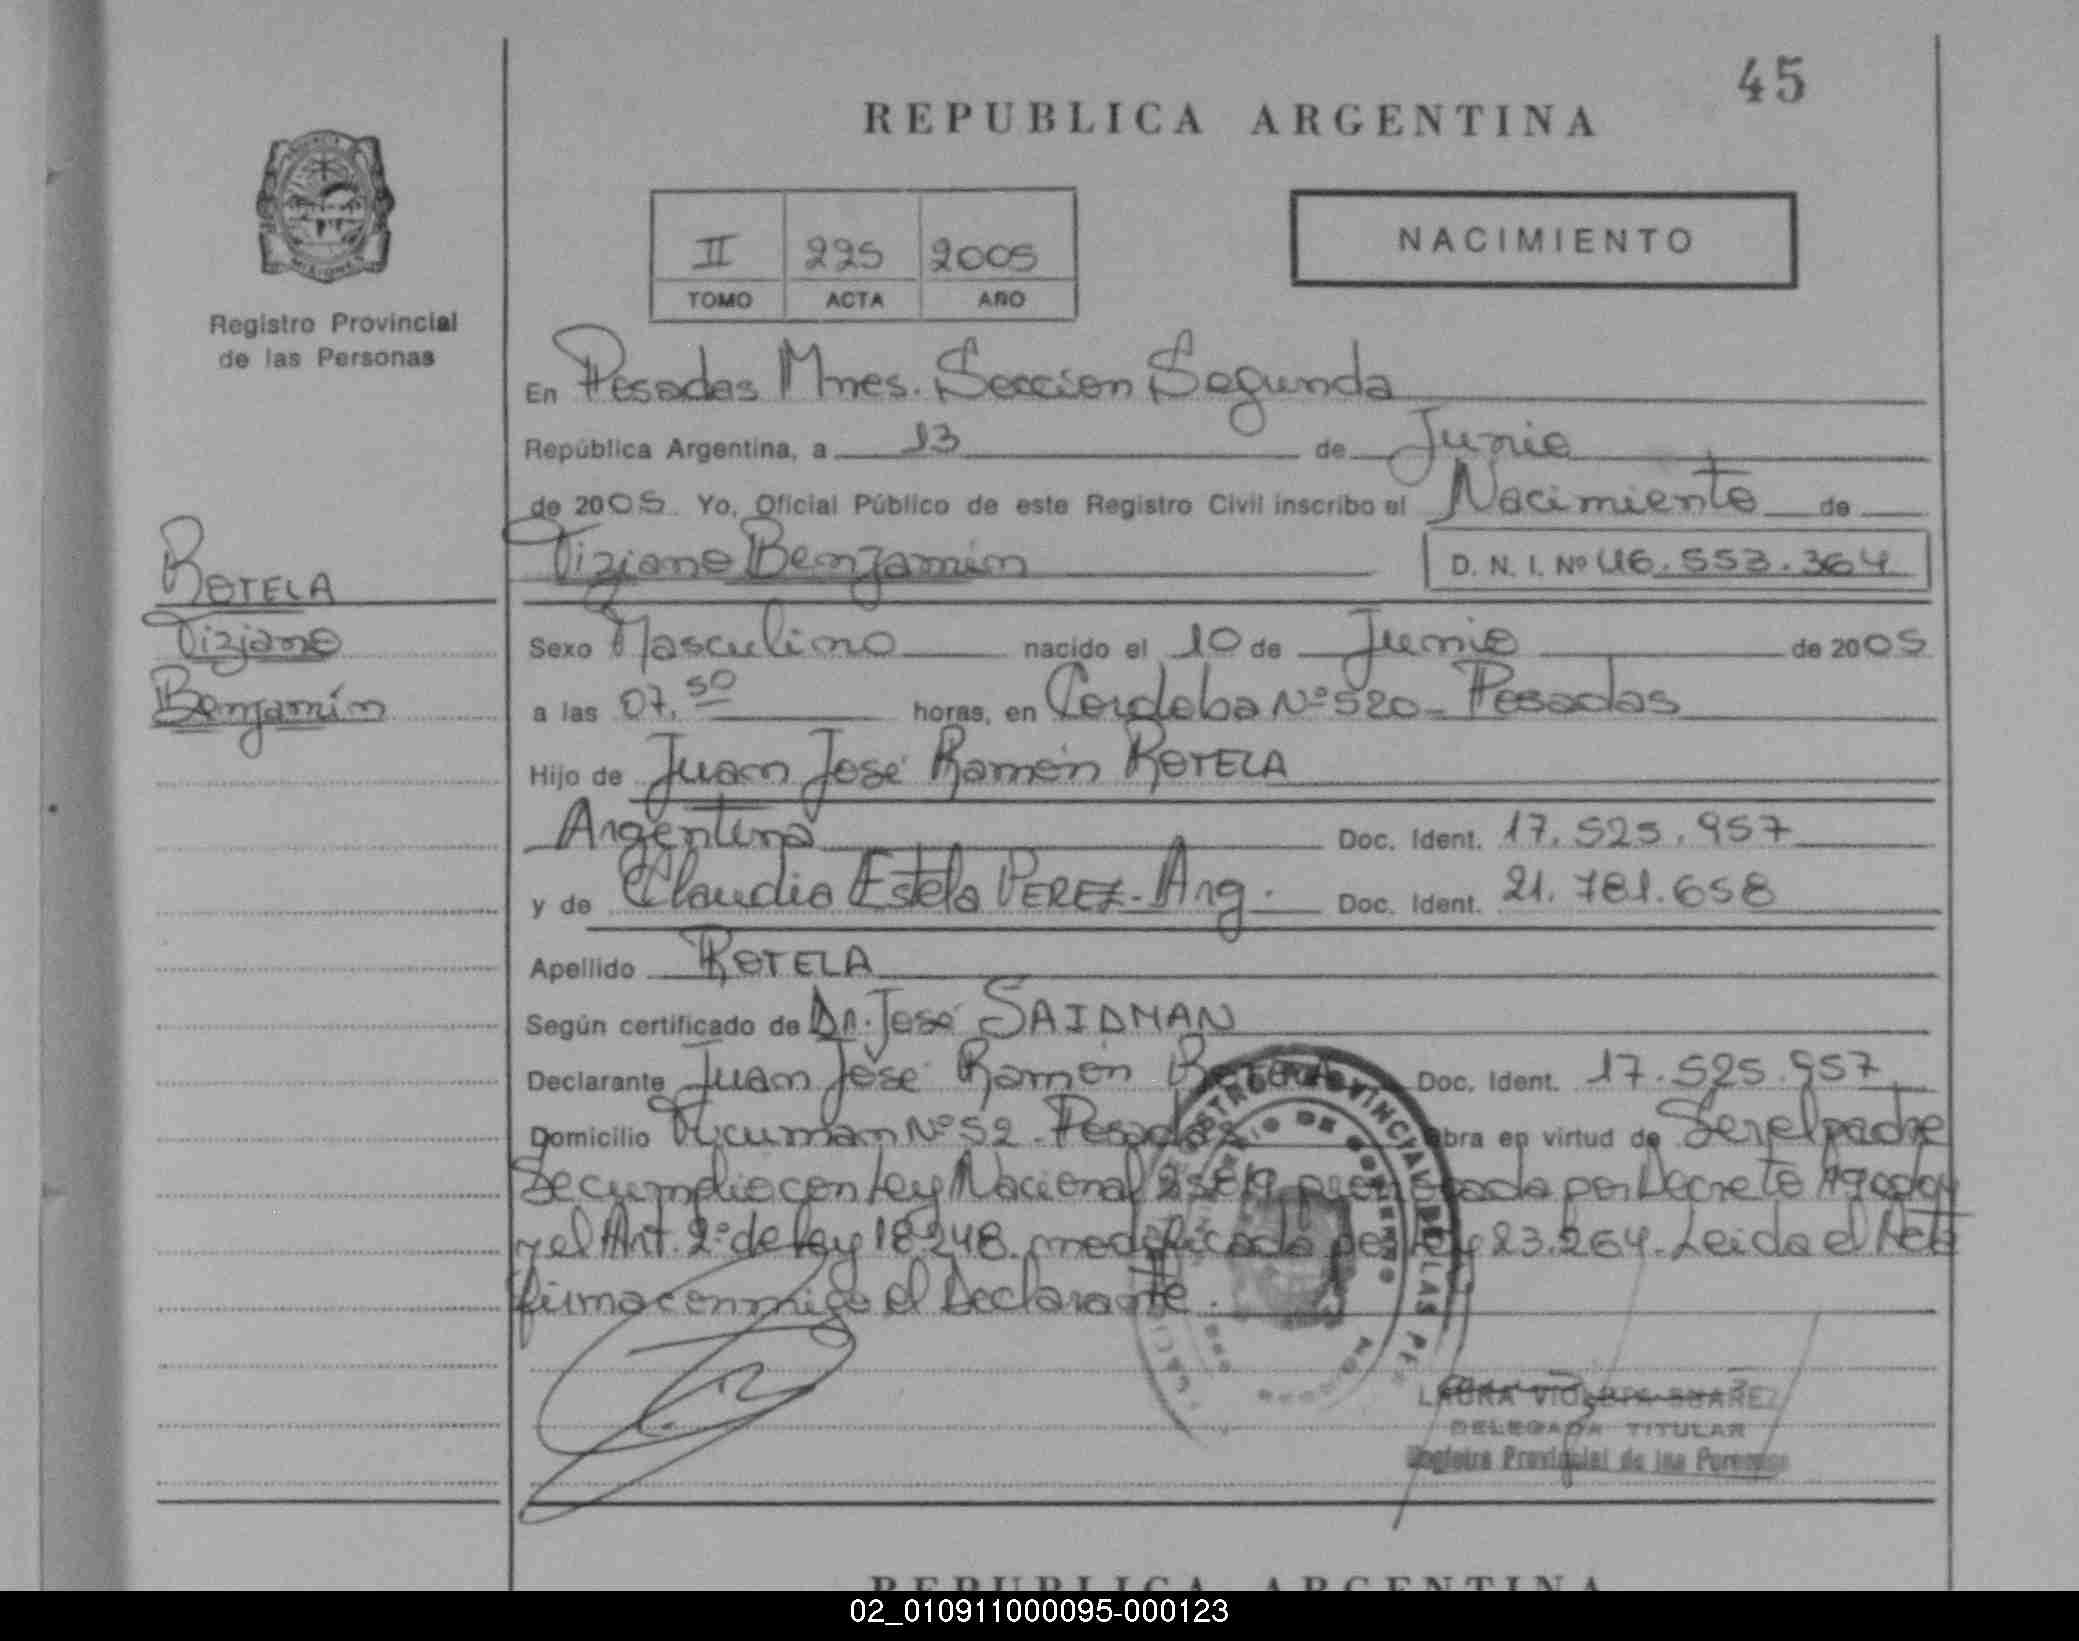 45
REPUBLICA ARGENTINA
II 225 2005
TOMO ACTA AÑO
NACIMIENTO
Registro Provincial
de las Personas
En Posadas Mnes. Seccion Segunda
República Argentina, a 13 de Junio
de 2005. Yo, Oficial Público de este Registro Civil inscribo el Nacimiento de
Tiziano Benjamín D. N. I. Nº 46.553.364
ROTELA
Tiziano
Benjamín
Sexo Masculino nacido el 10 de Junio de 2005
a las 07,50 horas, en Cordoba Nº 520 - Posadas
Hijo de Juan José Ramón ROTELA
Argentina Doc. Ident. 17.525.957
y de Claudia Estela PEREZ - Arg. Doc. Ident. 21.781.658
Apellido ROTELA
Según certificado de Dr. José SAIDMAN
Declarante Juan José Ramón Rotela Doc. Ident. 17.525.957
Domicilio Tucuman Nº 52 - Posadas Obra en virtud de Ser el padre
Se cumplio con Ley Nacional por Decreto
y el Art. 2º de Ley 18.248 modificada por Ley 23.264. Leida el Acta
firma conmigo el Declarante.
LAURA VIOLETA SUAREZ
DELEGADA TITULAR
Registro Provincial de las Personas
REPUBLICA ARGENTINA
02_010911000095-000123